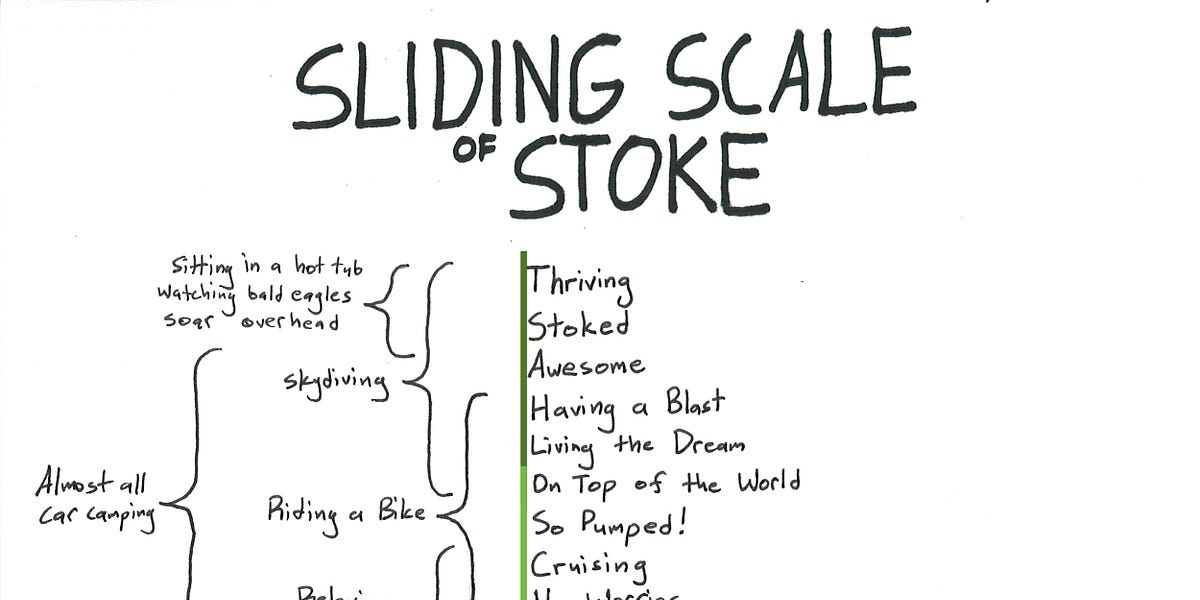 SLIDING SCALE
OF STOKE
Sitting in a hot tub
watching bald eagles
soar overhead
skydiving
Almost all
car camping
Riding a Bike
Thriving
Stoked
Awesome
Having a Blast
Living the Dream
On Top of the World
So Pumped!
Cruising